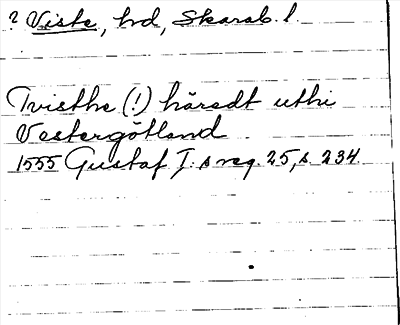 ? Viste, hd, Skarab. l.
Tvisthe (!) häredt uthi
Vestergötland
1555 Gustaf I:s reg. 25, s. 234